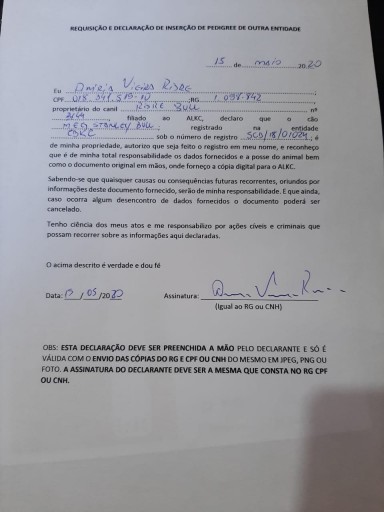 REQUISIÇÃO E DECLARAÇÃO DE INSERÇÃO DE PEDIGREE DE OUTRA ENTIDADE
15 de maio 2020
Eu
CPF RG
proprietário do canil Bull nº
3149, filiado ao ALKC, declaro que o cão
MEO STANLEY BULL registrado na entidade
sob o número de registro, é
de minha propriedade, autorizo que seja feito o registro em meu nome, e reconheço
que é de minha total responsabilidade os dados fornecidos e a posse do animal bem
como o documento original em mãos, onde forneço a cópia digital para o ALKC.
Sabendo-se que quaisquer causas ou consequências futuras recorrentes, oriundos por
informações deste documento fornecido, serão de minha responsabilidade. E que ainda,
caso ocorra algum desencontro de dados fornecidos o documento poderá ser
cancelado.
Tenho ciência dos meus atos e me responsabilizo por ações cíveis e criminais que
possam recorrer sobre as informações aqui declaradas.
O acima descrito é verdade e dou fé
Data: / 05 /2020 Assinatura:
(Igual ao RG ou CNH)
OBS: ESTA DECLARAÇÃO DEVE SER PREENCHIDA A MÃO PELO DECLARANTE E SÓ É
VÁLIDA COM O ENVIO DAS CÓPIAS DO RG E CPF OU CNH DO MESMO EM JPEG, PNG OU
FOTO. A ASSINATURA DO DECLARANTE DEVE SER A MESMA QUE CONSTA NO RG CPF
OU CNH.